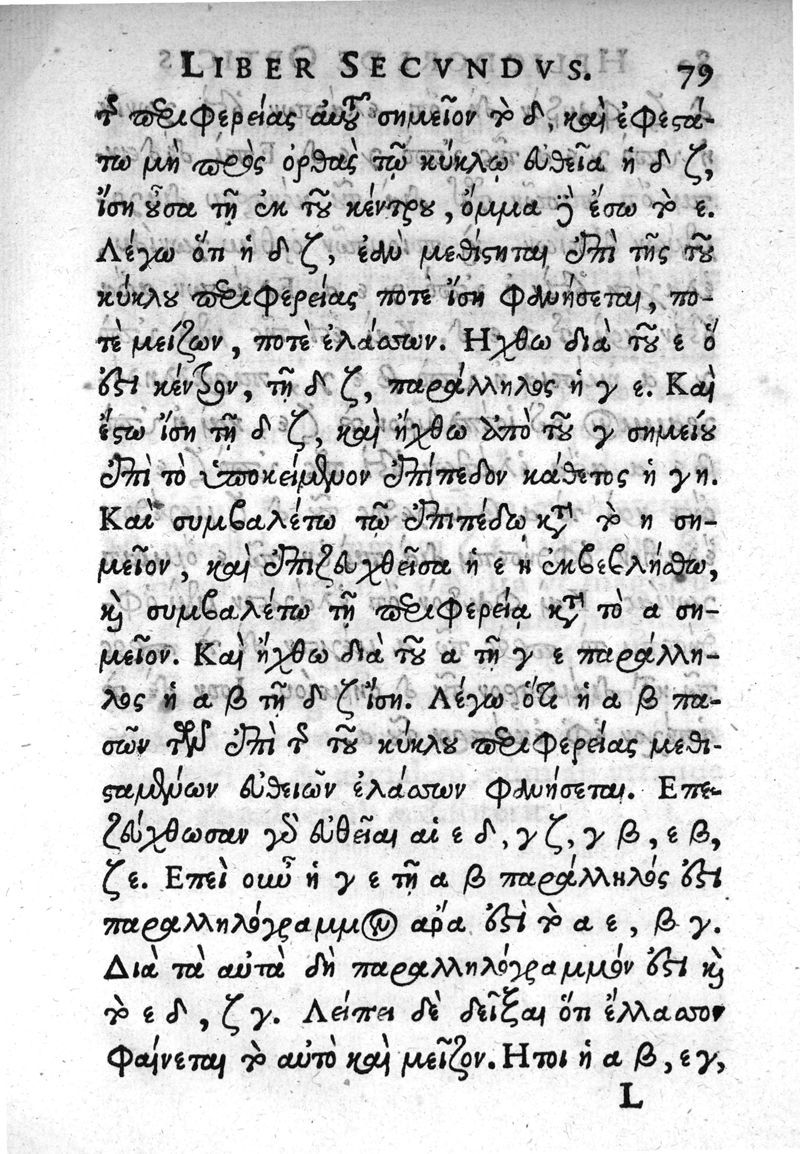 LIBER SECVNDVS. 79
τῆς περιφερείας αὐτοῦ σημεῖον τὸ δ, καὶ ἐφεστά-
τω μὴ πρὸς ὀρθὰς τῷ κύκλῳ εὐθεῖα ἡ δ ζ,
ἴση οὖσα τῇ ἐκ τοῦ κέντρου, ὄμμα δὲ ἔστω τὸ ε.
Λέγω ὅτι ἡ δ ζ, ἐὰν μεθίστηται ἐπὶ τῆς τοῦ
κύκλου περιφερείας ποτὲ ἴση φανήσεται, πο-
τὲ μείζων, ποτὲ ἐλάσσων. Ηχθω διὰ τοῦ ε ὅ
ἐστι κέντρον, τῇ δ ζ, παράλληλος ἡ γ ε. Καὶ
ἔστω ἴση τῇ δ ζ, καὶ ἤχθω ἀπὸ τοῦ γ σημείου
ἐπὶ τὸ ὑποκείμενον ἐπίπεδον κάθετος ἡ γη.
Καὶ συμβαλέτω τῷ ἐπιπέδῳ κατὰ τὸ η ση-
μεῖον, καὶ ἐπιζευχθεῖσα ἡ ε η ἐκβεβλήσθω,
καὶ συμβαλέτω τῇ περιφερείᾳ κατὰ τὸ α ση-
μεῖον. Καὶ ἤχθω διὰ τοῦ α τῇ γ ε παράλλη-
λος ἡ α β τῇ δ ζ ἴση. Λέγω ὅτι ἡ α β πα-
σῶν τῶν ἐπὶ τῆς τοῦ κύκλου περιφερείας μεθι-
σταμένων εὐθειῶν ἐλάσσων φανήσεται. Επε-
ζεύχθωσαν γὰρ εὐθεῖαι αἱ ε δ, γ ζ, γ β, ε β,
ζ ε. Επεὶ οὖν ἡ γ ε τῇ α β παράλληλός ἐστι
παραλληλόγραμμον ἄρα ἐστὶ τὸ α ε, β γ.
Διὰ τὰ αὐτὰ δὴ παραλληλόγραμμόν ἐστι καὶ
τὸ ε δ, ζ γ. Λείπει δὲ δεῖξαι ὅτι ἔλλασσον
φαίνεται τὸ αὐτὸ καὶ μεῖζον. Ητοι ἡ α β, ε γ,
L